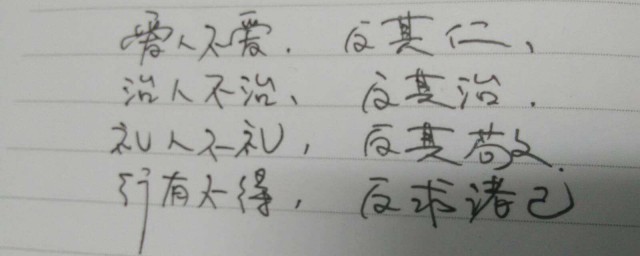 爱人不爱、反其仁、
治人不治、反其治.
礼人不礼,反其敬.
行有不得,反求诸己